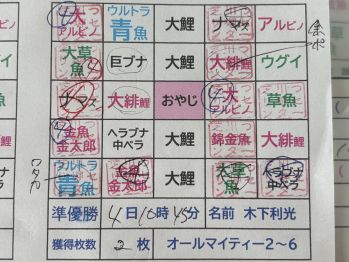 ④大アルビノ ウルトラ青魚 大鯉 ナマズ アルビノ
大草魚 巨ブナ 大鯉 大緋鯉 ウグイ
ナマズ 大緋鯉 おやじ ④大アルビノ 草魚
④金魚金太郎 ヘラブナ中ベラ 大鯉 錦金魚 大緋鯉
ワタカ ウルトラ青魚 金魚金太郎 大鯉 大草魚 ヘラブナ中ベラ
準優勝 4日10時45分 名前 木下利光
獲得枚数 2枚 オールマイティー2~6